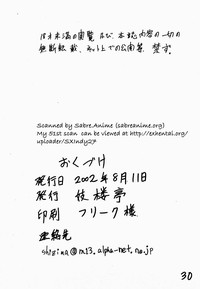 18才未満の閲覧及び、本誌内容の一切の
無断転載、ネット上での公開等、禁ず。
Scanned by Sabre.Anime (sabreanime.org)
My 51st scan can be viewed at http://exhentai.org/
uploader/SXIndy27
おくづけ
発行日 2002年8月11日
発行 伎楼亭
印刷 フリーク様
連絡先
shigina@m13.alpha-net.ne.jp
30